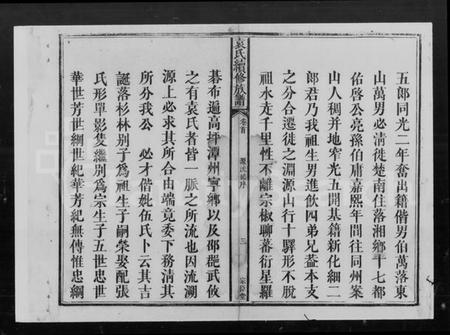 五郎同光二年奮出籍偕男伯萬落東
山萬男必清徙楚南住落湘鄉十七都
佑啓公亮孫伯庸嘉熙年間往同州案
山人稠井地窄光五開基籍新化細二
郎君乃我祖生男進飲四弟兄蓋本支
之分合遷徙之淵源山行十驛形不脫
祖水走千里性不離宗椒聊蕃衍星羅
袁氏續修族譜
卷首
源流總序
三
棊布遍高坪潭州寧鄉以及邵郡武攸
之有袁氏者皆一脈之所流也因流溯
源上必求其所合由端竟委下務清其
所分我公 必才偕妣伍氏卜云其吉
誕落杉林別子為祖生子嗣榮娶配張
氏形單影隻繼別爲宗生子五世忠世
華世芳世綱世紀華芳紀無傳惟忠綱